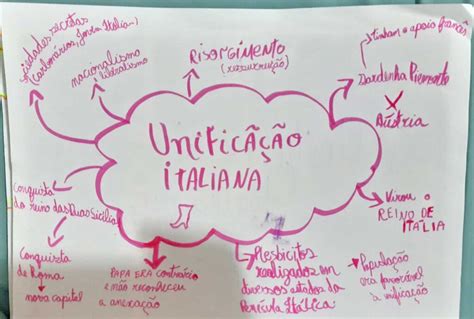 sociedades secretas
(carbonários, Jovem Itália...)
nacionalismo
e liberalismo
RISORGIMENTO
(ressurreição)
tinham o apoio francês
Sardenha Piemonte
X
Áustria
UNIFICAÇÃO
ITALIANA
Virou o
REINO DE
ITÁLIA
Conquista
do reino das Duas Sicílias
Conquista
de Roma
nova capital
PAPA ERA contrário
e não reconheceu
a anexação
Plesbicitos
realizados em
diversos estados da
Península Itálica
População
era favorável
a unificação